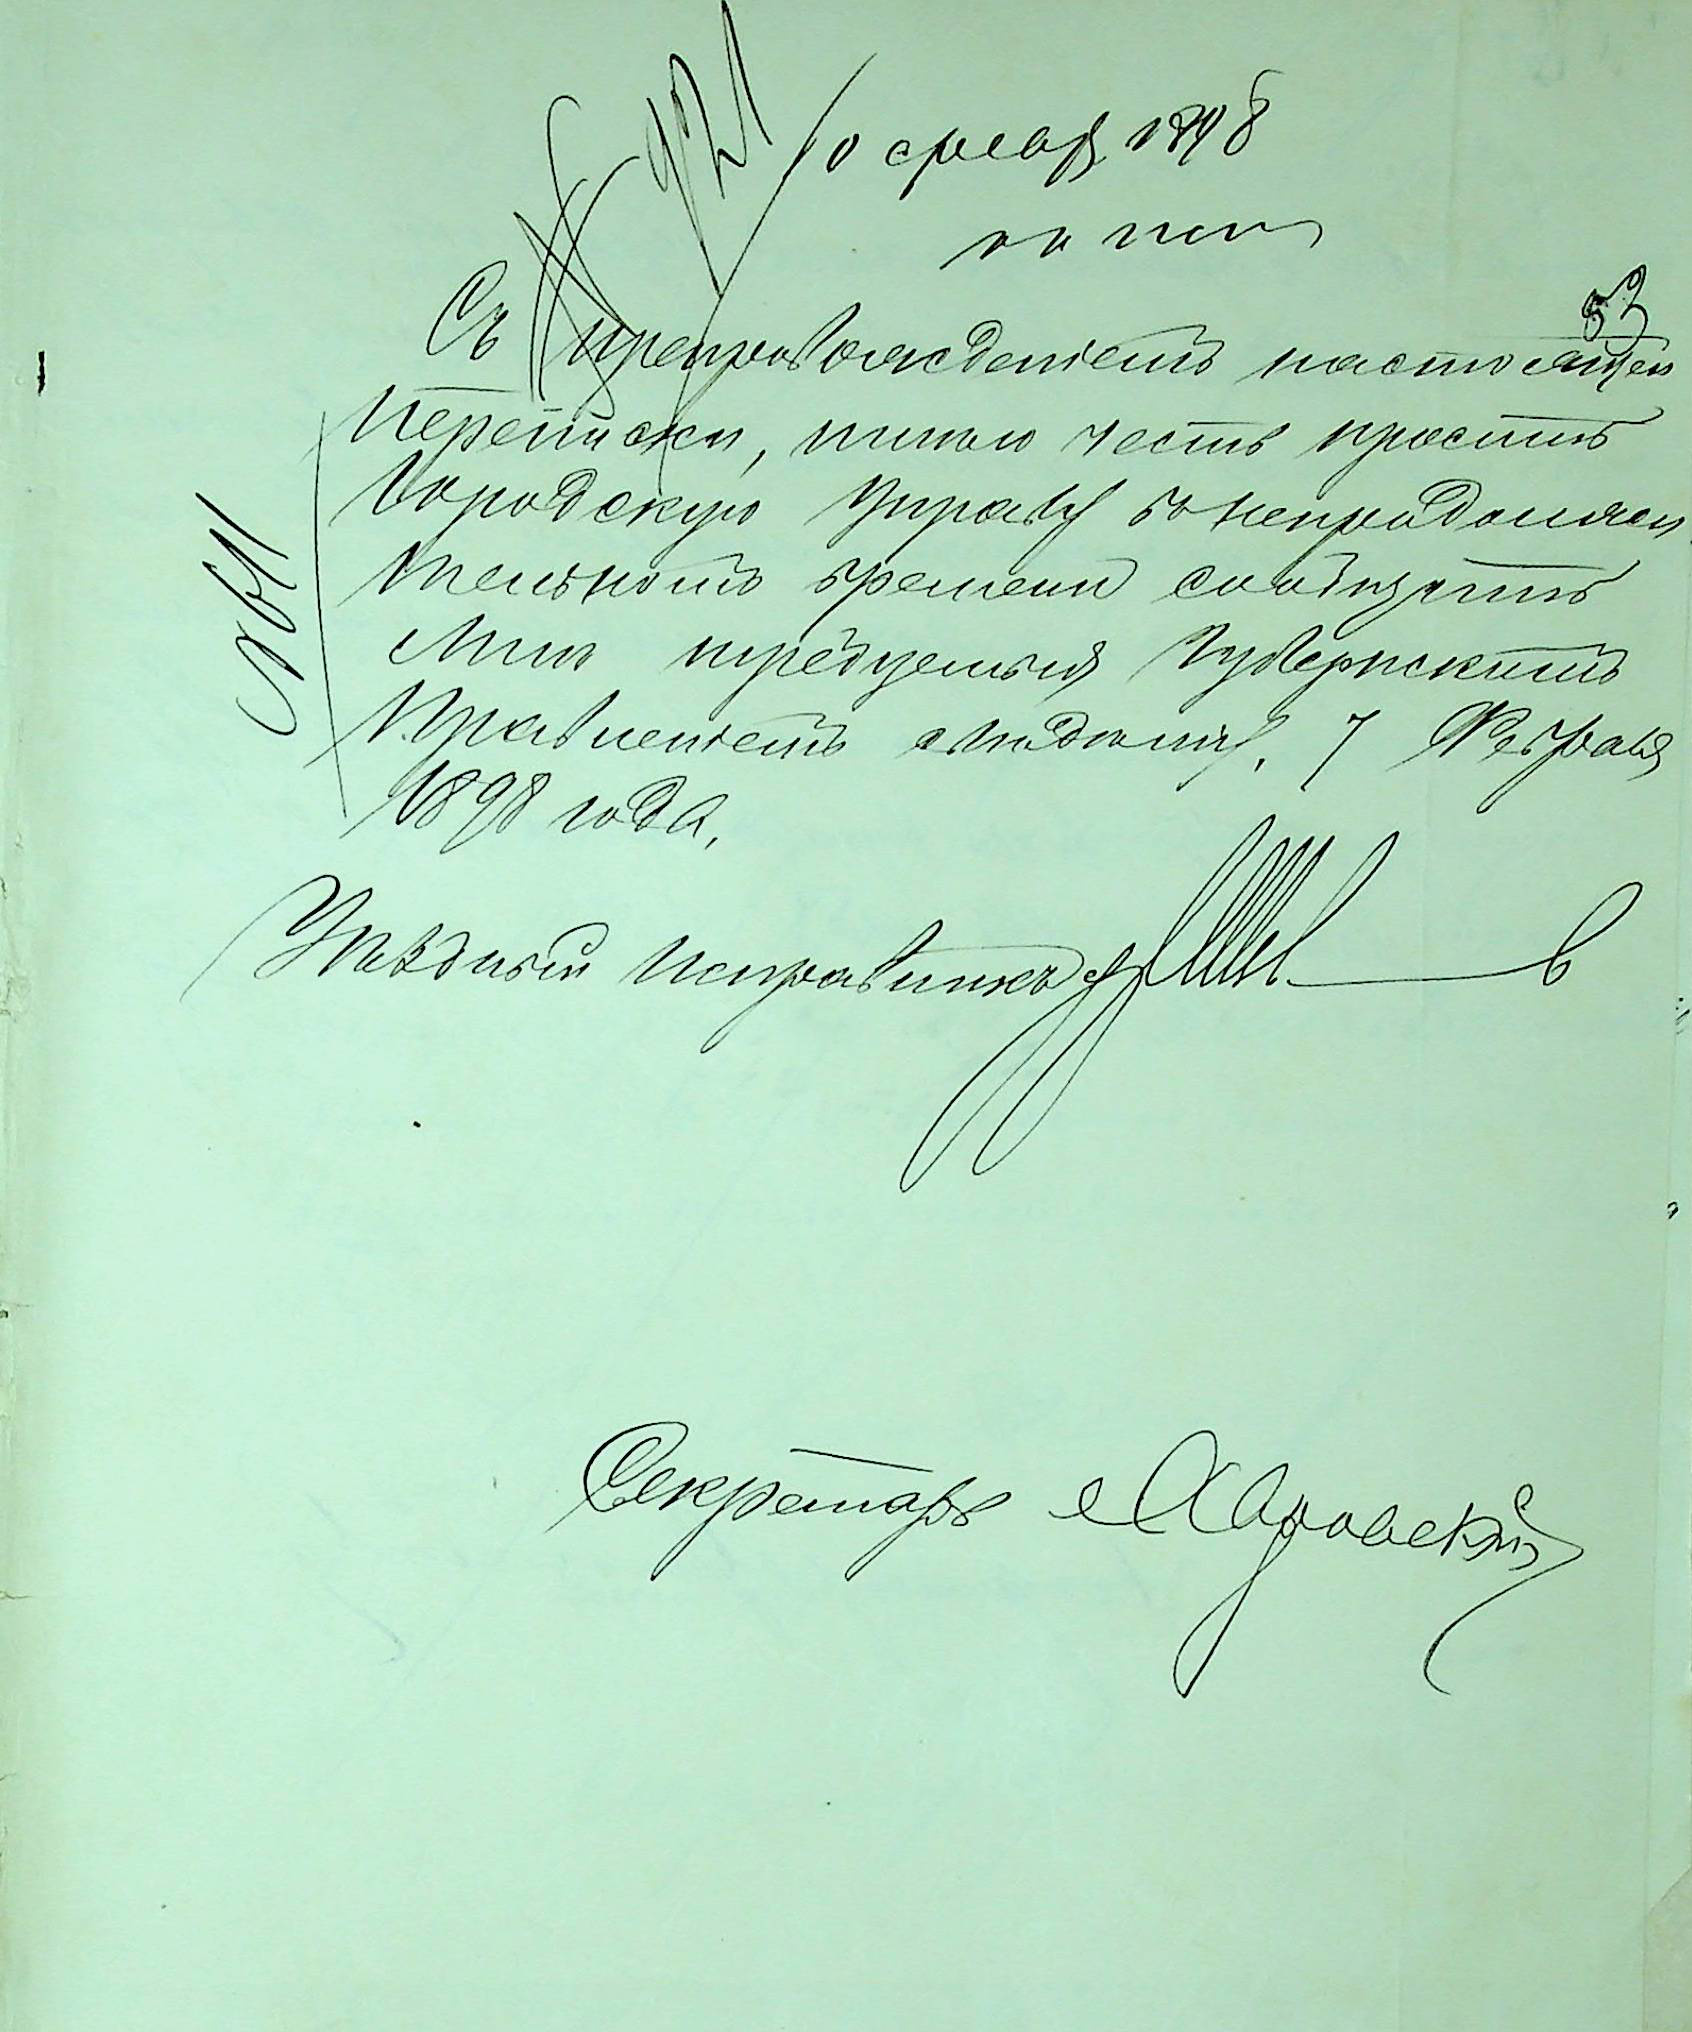 921
10 февр 1898
53
Съ препровожденіемъ настоящей
переписки, имѣю честь просить
Городскую Управу въ непродолжи
тельномъ времени сообщить
мнѣ требуемыя Губернскимъ
Правленіемъ свѣдѣнія. 7 Февраля
1898 года.
Уѣздный Исправникъ
Секретарь